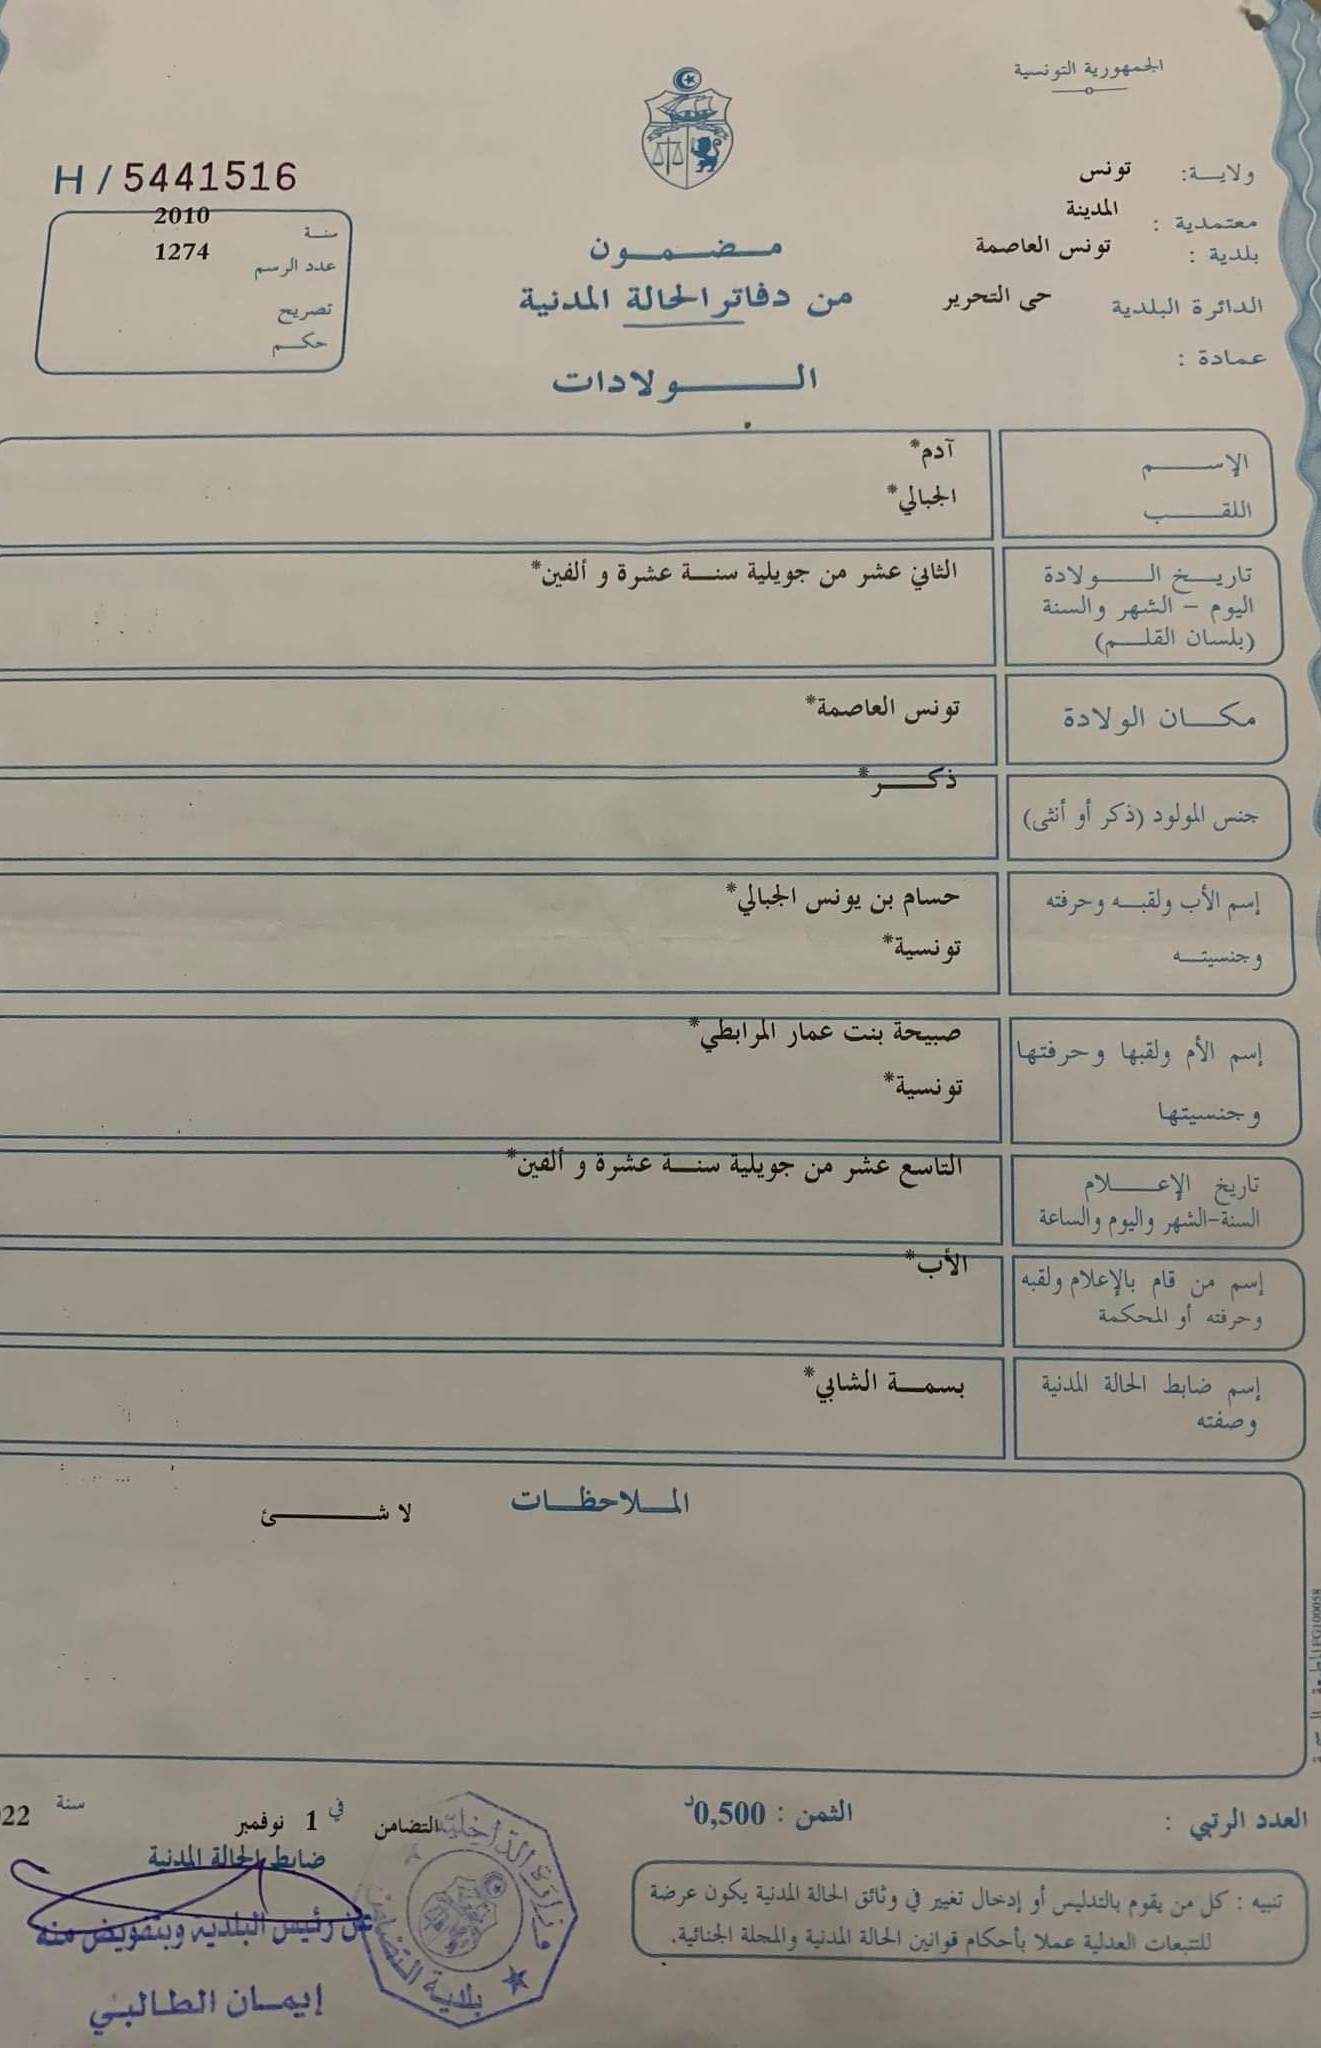 الجمهورية التونسية
ولايـــة: تونس
معتمدية : المدينة
بلدية : تونس العاصمة
الدائرة البلدية حى التحرير
عمادة :
H / 5441516
سنة 2010
عدد الرسم 1274
تصريح
حكـم
مـضـمـون
من دفاتر الحالة المدنية
الـولادات
الإســم آدم*
اللقـب الجبالي*
تاريـخ الـولادة الثاني عشر من جويلية سنـة عشرة و ألفين*
اليوم - الشهر والسنة
(بلسان القلـم)
مكـان الولادة تونس العاصمة*
جنس المولود (ذكر أو أنثى) ذكـر*
إسم الأب ولقبـه وحرفته حسام بن يونس الجبالي*
وجنسيتـه تونسية*
إسم الأم ولقبها وحرفتها صبيحة بنت عمار المرابطي*
وجنسيتها تونسية*
تاريخ الإعـلام التاسع عشر من جويلية سنـة عشرة و ألفين*
السنة-الشهر واليوم والساعة
إسم من قام بالإعلام ولقبه الأب*
وحرفته أو المحكمة
إسم ضابط الحالة المدنية بسمـة الشابي*
وصفته
الملاحظـات
لا شـئ
العدد الرتبي :
الثمن : 0,500د
التضامن في 1 نوفمبر سنة 22
ضابط الحالة المدنية
عن رئيس البلدية وبتفويض منه
إيمـان الطـالبـي
وزارة الداخلية
بلدية التضامن
تنبيه : كل من يقوم بالتدليس أو إدخال تغيير في وثائق الحالة المدنية يكون عرضة
للتتبعات العدلية عملا بأحكام قوانين الحالة المدنية والمجلة الجنائية.